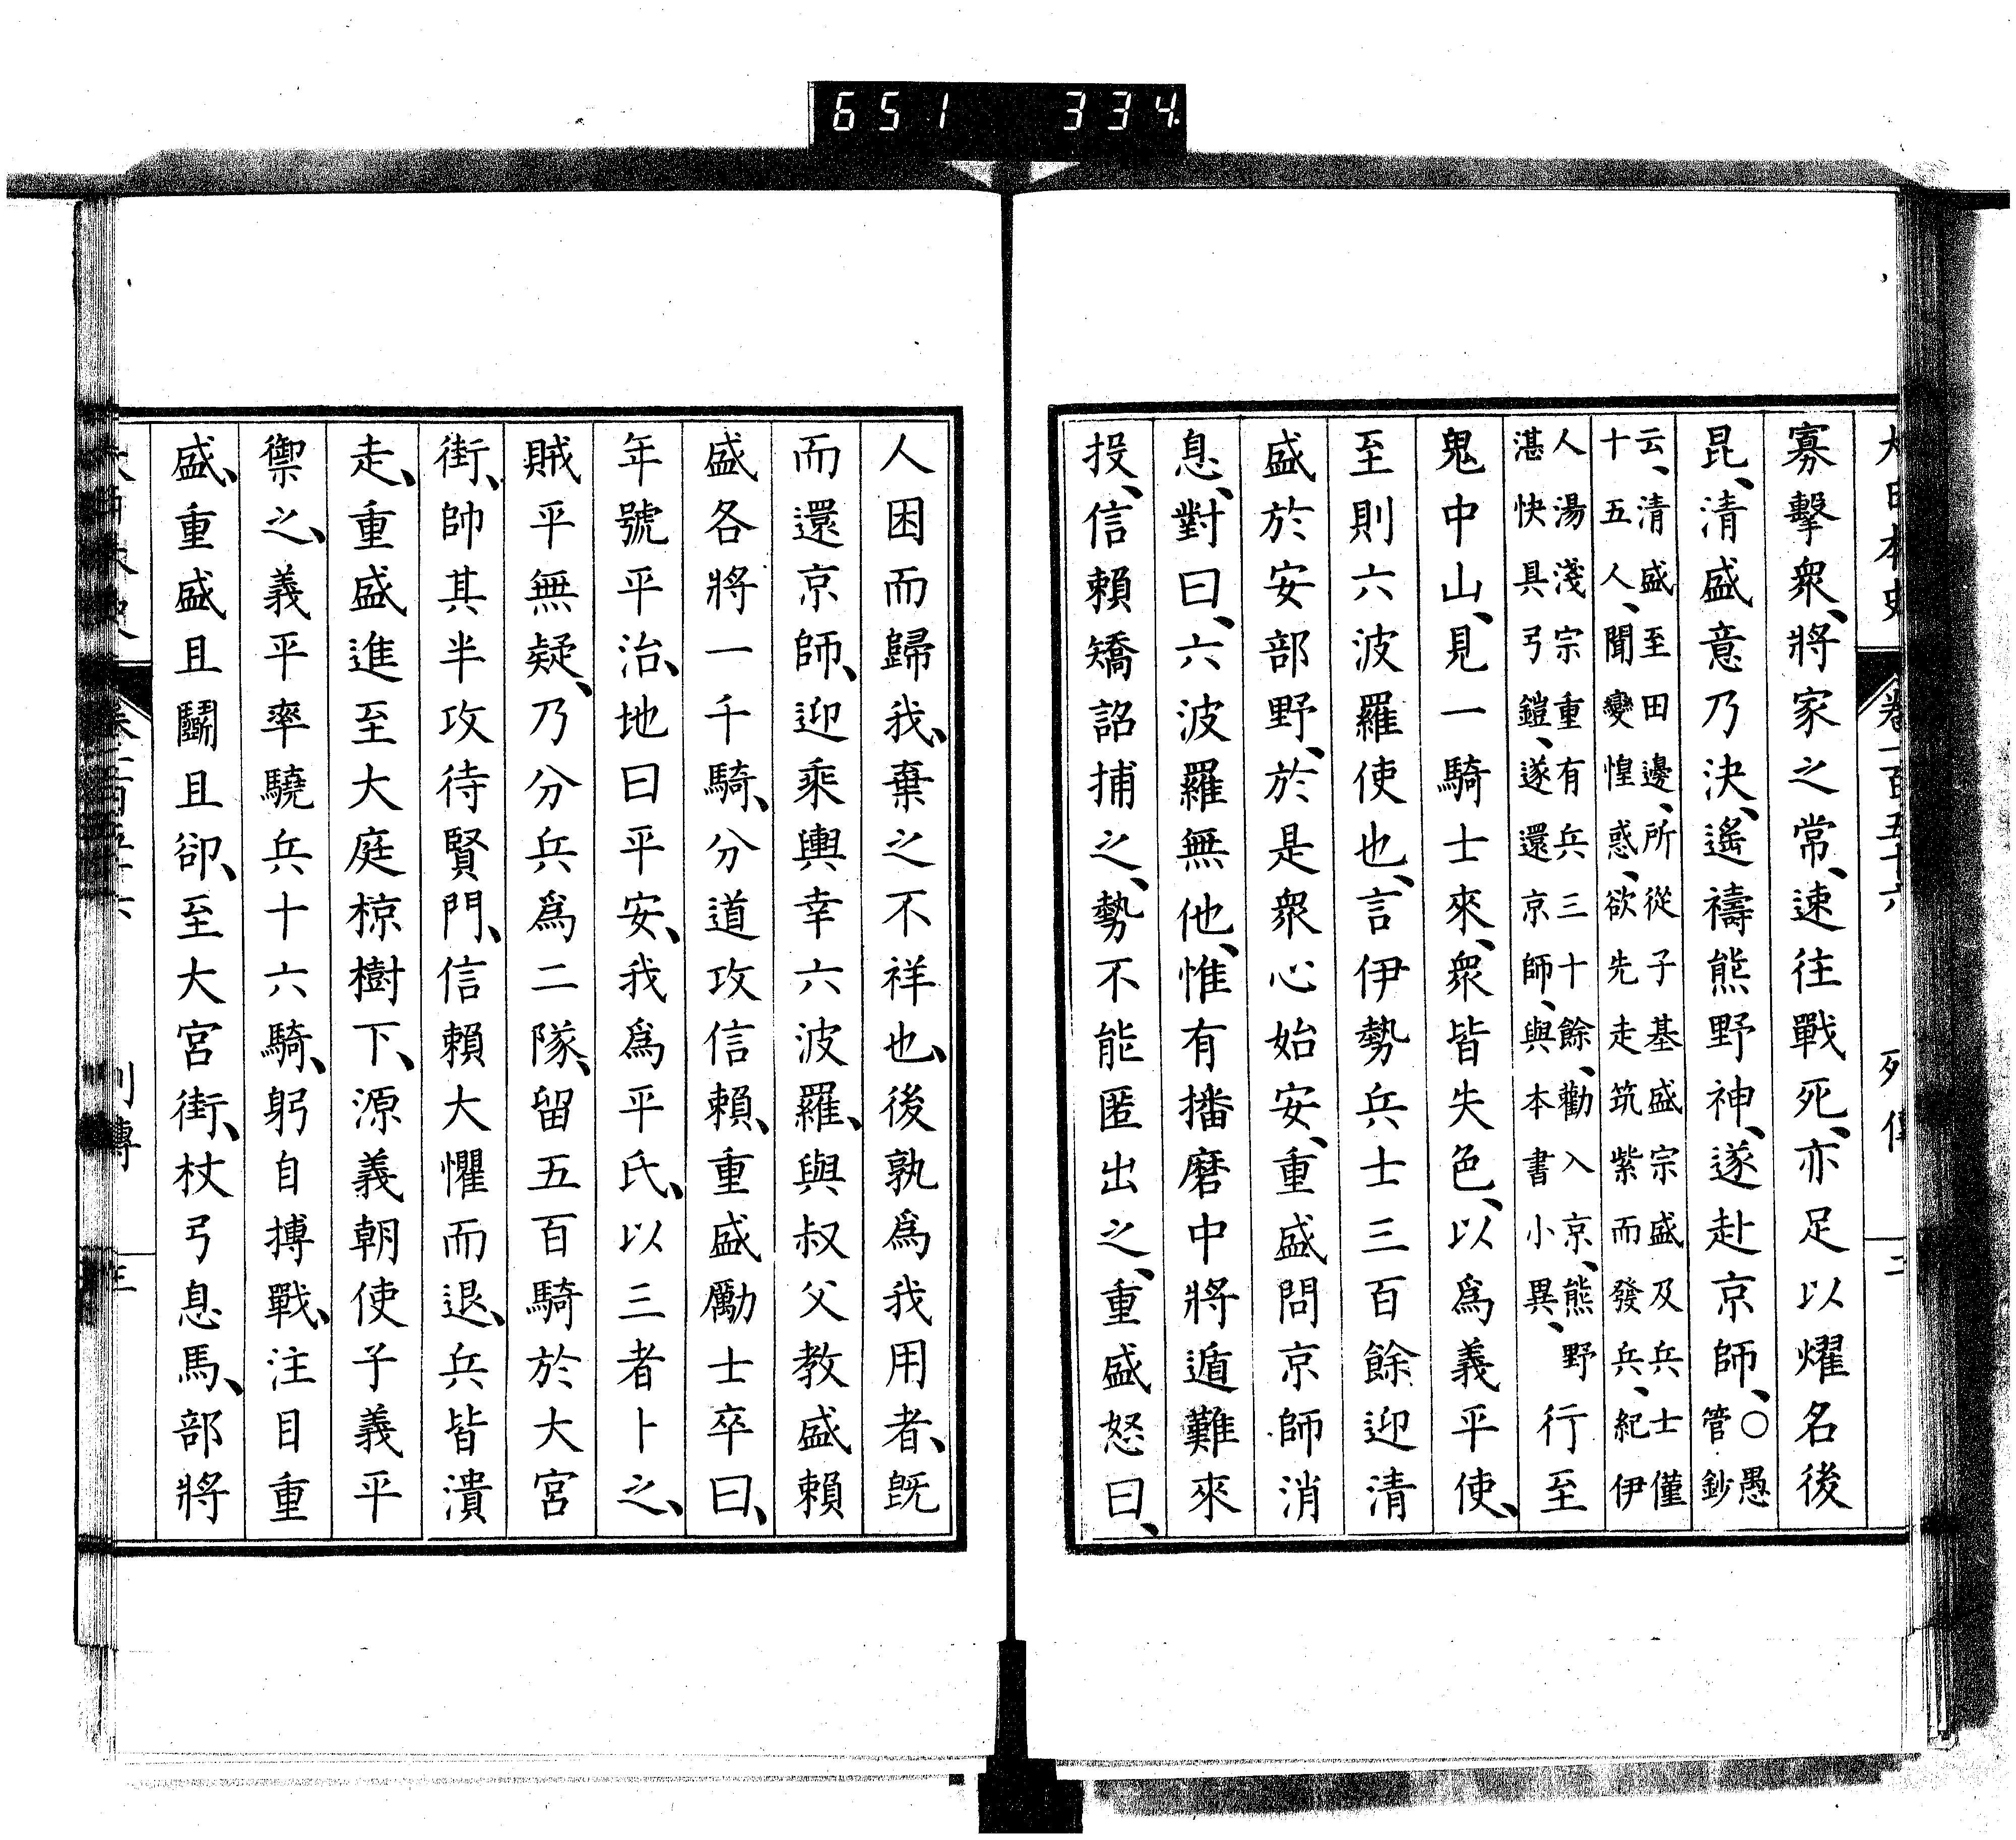 651 334
大日本史 卷一百五十六 列傳 二
寡擊衆、將家之常、速往戰死、亦足以燿名後
昆、清盛意乃決、遙禱熊野神、遂赴京師、○愚管鈔
云、清盛至田邊、所從子基盛宗盛及兵士僅
十五人、聞變惶惑、欲先走筑紫而發兵、紀伊
人湯淺宗重有兵三十餘、勸入京、熊野
湛快具弓鎧、遂還京師、與本書小異、行至
鬼中山、見一騎士來、衆皆失色、以爲義平使、
至則六波羅使也、言伊勢兵士三百餘迎清
盛於安部野、於是衆心始安、重盛問京師消
息、對曰、六波羅無他、惟有播磨中將遁難來
投、信賴矯詔捕之、勢不能匿出之、重盛怒曰、
人困而歸我、棄之不祥也、後孰爲我用者、既
而還京師、迎乘輿幸六波羅、與叔父敎盛賴
盛各將一千騎、分道攻信賴、重盛勵士卒曰、
年號平治、地曰平安、我爲平氏、以三者卜之、
賊平無疑、乃分兵爲二隊、留五百騎於大宮
街、帥其半攻待賢門、信賴大懼而退、兵皆潰
走、重盛進至大庭椋樹下、源義朝使子義平
禦之、義平率驍兵十六騎、躬自搏戰、注目重
盛、重盛且鬭且卻、至大宮街、杖弓息馬、部將
列傳 三